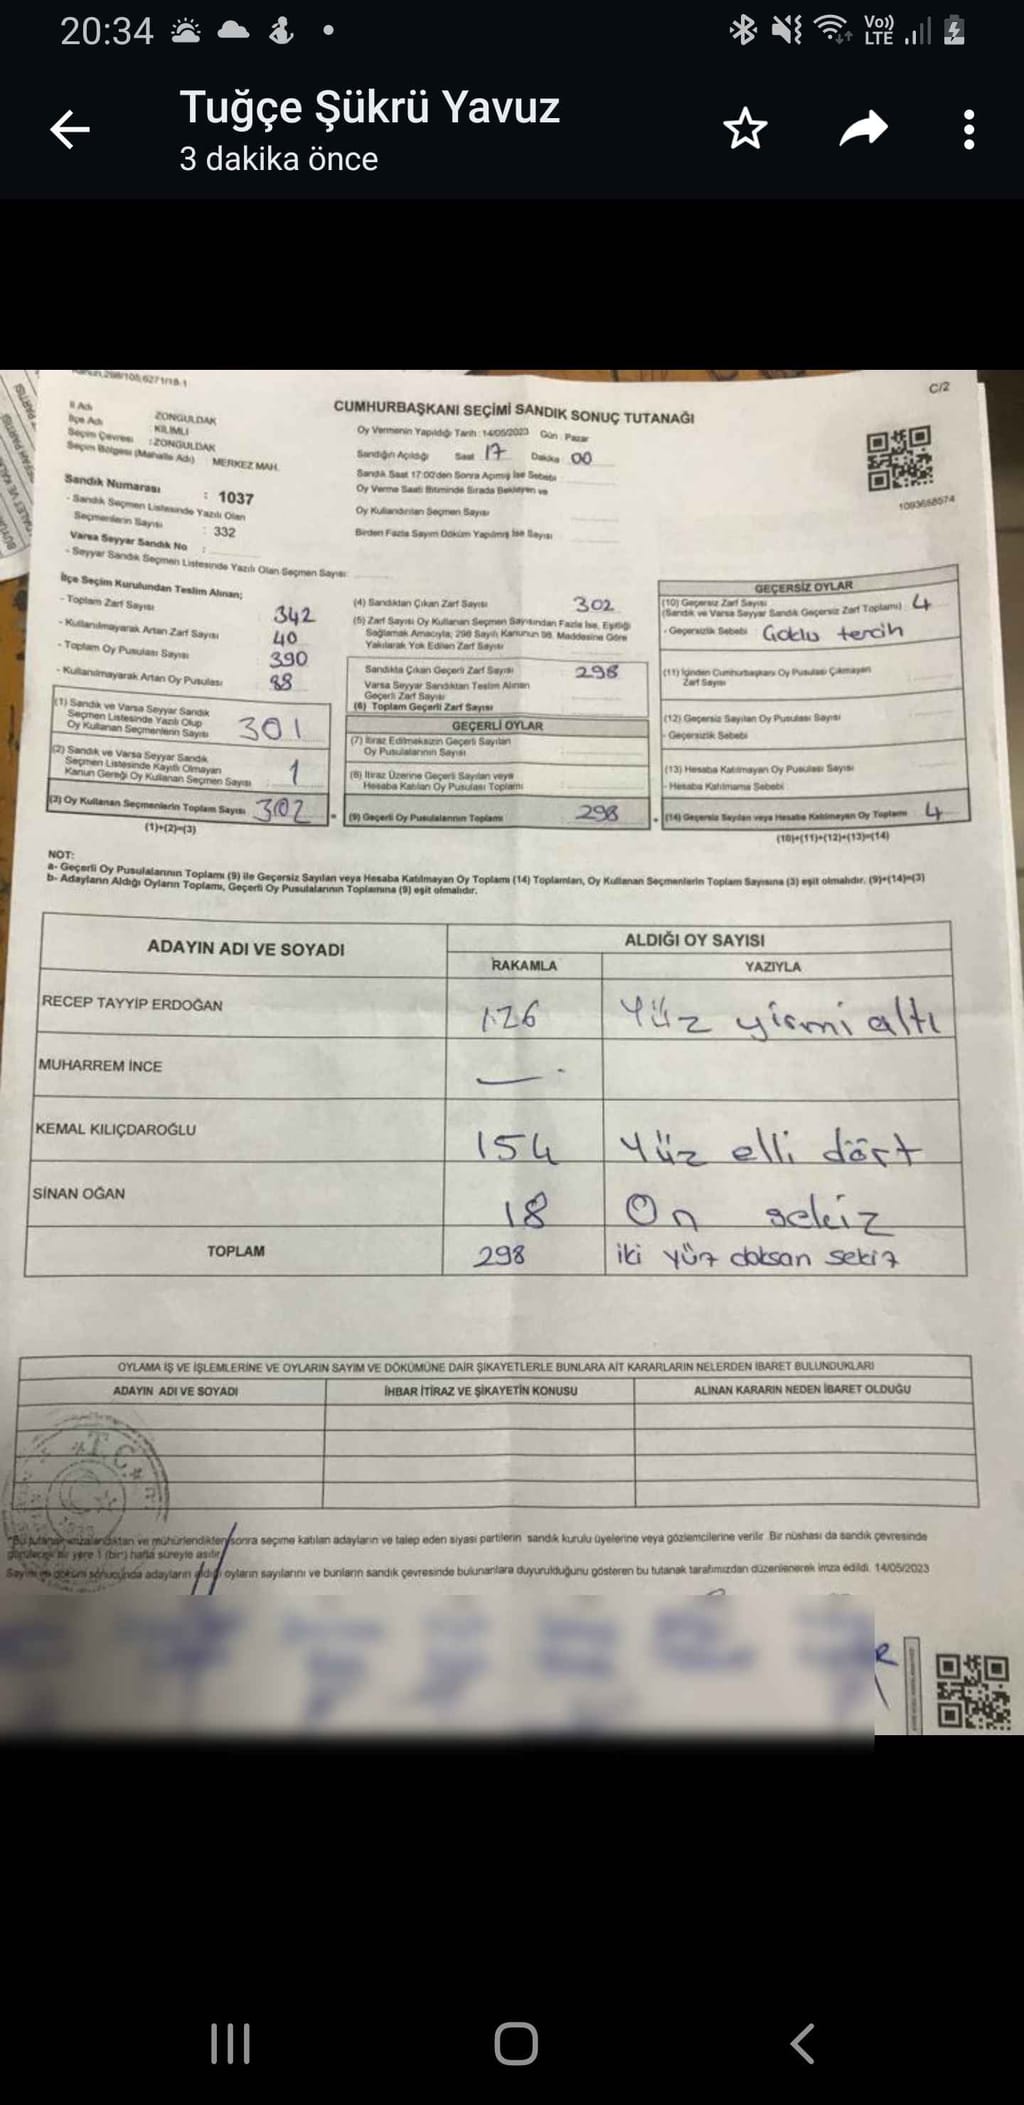 20:34
Vo))
LTE
Tuğçe Şükrü Yavuz
3 dakika önce
C/2
CUMHURBAŞKANI SEÇİMİ SANDIK SONUÇ TUTANAĞI
İl Adı ZONGULDAK
İlçe Adı KİLİMLİ
Seçim Çevresi : ZONGULDAK
Seçim Bölgesi (Mahalle Adı) MERKEZ MAH.
Sandık Numarası : 1037
- Sandık Seçmen Listesinde Yazılı Olan
Seçmenlerin Sayısı : 332
Varsa Seyyar Sandık No :
- Seyyar Sandık Seçmen Listesinde Yazılı Olan Seçmen Sayısı
Oy Vermenin Yapıldığı Tarih: 14/05/2023 Gün : Pazar
Sandığın Açıldığı Saat 17 Dakika 00
Sandık Saat 17:00'den Sonra Açılmış İse Sebebi
Oy Verme Saati Bitiminde Sırada Bekleyen ve
Oy Kullandırılan Seçmen Sayısı
Birden Fazla Sayım Döküm Yapılmış İse Sayısı
1093658574
İlçe Seçim Kurulundan Teslim Alınan;
- Toplam Zarf Sayısı 342
- Kullanılmayarak Artan Zarf Sayısı 40
- Toplam Oy Pusulası Sayısı 390
- Kullanılmayarak Artan Oy Pusulası 88
(1) Sandık ve Varsa Seyyar Sandık
Seçmen Listesinde Yazılı Olup
Oy Kullanan Seçmenlerin Sayısı 301
(2) Sandık ve Varsa Seyyar Sandık
Seçmen Listesinde Kayıtlı Olmayan
Kanun Gereği Oy Kullanan Seçmen Sayısı 1
(3) Oy Kullanan Seçmenlerin Toplam Sayısı 302
(1)+(2)=(3)
(4) Sandıktan Çıkan Zarf Sayısı 302
(5) Zarf Sayısı Oy Kullanan Seçmen Sayısından Fazla İse, Eşitliği
Sağlamak Amacıyla, 298 Sayılı Kanunun 98. Maddesine Göre
Yakılarak Yok Edilen Zarf Sayısı
Sandıkta Çıkan Geçerli Zarf Sayısı 298
Varsa Seyyar Sandıktan Teslim Alınan
Geçerli Zarf Sayısı
(6) Toplam Geçerli Zarf Sayısı
GEÇERLİ OYLAR
(7) İtiraz Edilmeksizin Geçerli Sayılan
Oy Pusulalarının Sayısı
(8) İtiraz Üzerine Geçerli Sayılan veya
Hesaba Katılan Oy Pusulası Toplamı
(9) Geçerli Oy Pusulalarının Toplamı 298
GEÇERSİZ OYLAR
(10) Geçersiz Zarf Sayısı
(Sandık ve Varsa Seyyar Sandık Geçersiz Zarf Toplamı) 4
- Geçersizlik Sebebi Çoklu tercih
(11) İçinden Cumhurbaşkanı Oy Pusulası Çıkmayan
Zarf Sayısı
(12) Geçersiz Sayılan Oy Pusulası Sayısı
- Geçersizlik Sebebi
(13) Hesaba Katılmayan Oy Pusulası Sayısı
- Hesaba Katılmama Sebebi
(14) Geçersiz Sayılan veya Hesaba Katılmayan Oy Toplamı 4
(10)+(11)+(12)+(13)=(14)
NOT:
a- Geçerli Oy Pusulalarının Toplamı (9) ile Geçersiz Sayılan veya Hesaba Katılmayan Oy Toplamı (14) Toplamları, Oy Kullanan Seçmenlerin Toplam Sayısına (3) eşit olmalıdır. (9)+(14)=(3)
b- Adayların Aldığı Oyların Toplamı, Geçerli Oy Pusulalarının Toplamına (9) eşit olmalıdır.
ADAYIN ADI VE SOYADI ALDIĞI OY SAYISI
RAKAMLA YAZIYLA
RECEP TAYYİP ERDOĞAN 126 Yüz yirmi altı
MUHARREM İNCE —
KEMAL KILIÇDAROĞLU 154 Yüz elli dört
SİNAN OĞAN 18 On sekiz
TOPLAM 298 iki yüz doksan sekiz
OYLAMA İŞ VE İŞLEMLERİNE VE OYLARIN SAYIM VE DÖKÜMÜNE DAİR ŞİKAYETLERLE BUNLARA AİT KARARLARIN NELERDEN İBARET BULUNDUKLARI
ADAYIN ADI VE SOYADI İHBAR İTİRAZ VE ŞİKAYETİN KONUSU ALINAN KARARIN NEDEN İBARET OLDUĞU
T.C.
Bu tutanak imzalandıktan ve mühürlendikten sonra seçime katılan adayların ve talep eden siyasi partilerin sandık kurulu üyelerine veya gözlemcilerine verilir. Bir nüshası da sandık çevresinde
görülecek bir yere 1 (bir) hafta süreyle asılır.
Sayım ve döküm sonucunda adayların aldığı oyların sayılarını ve bunların sandık çevresinde bulunanlara duyurulduğunu gösteren bu tutanak tarafımızdan düzenlenerek imza edildi. 14/05/2023